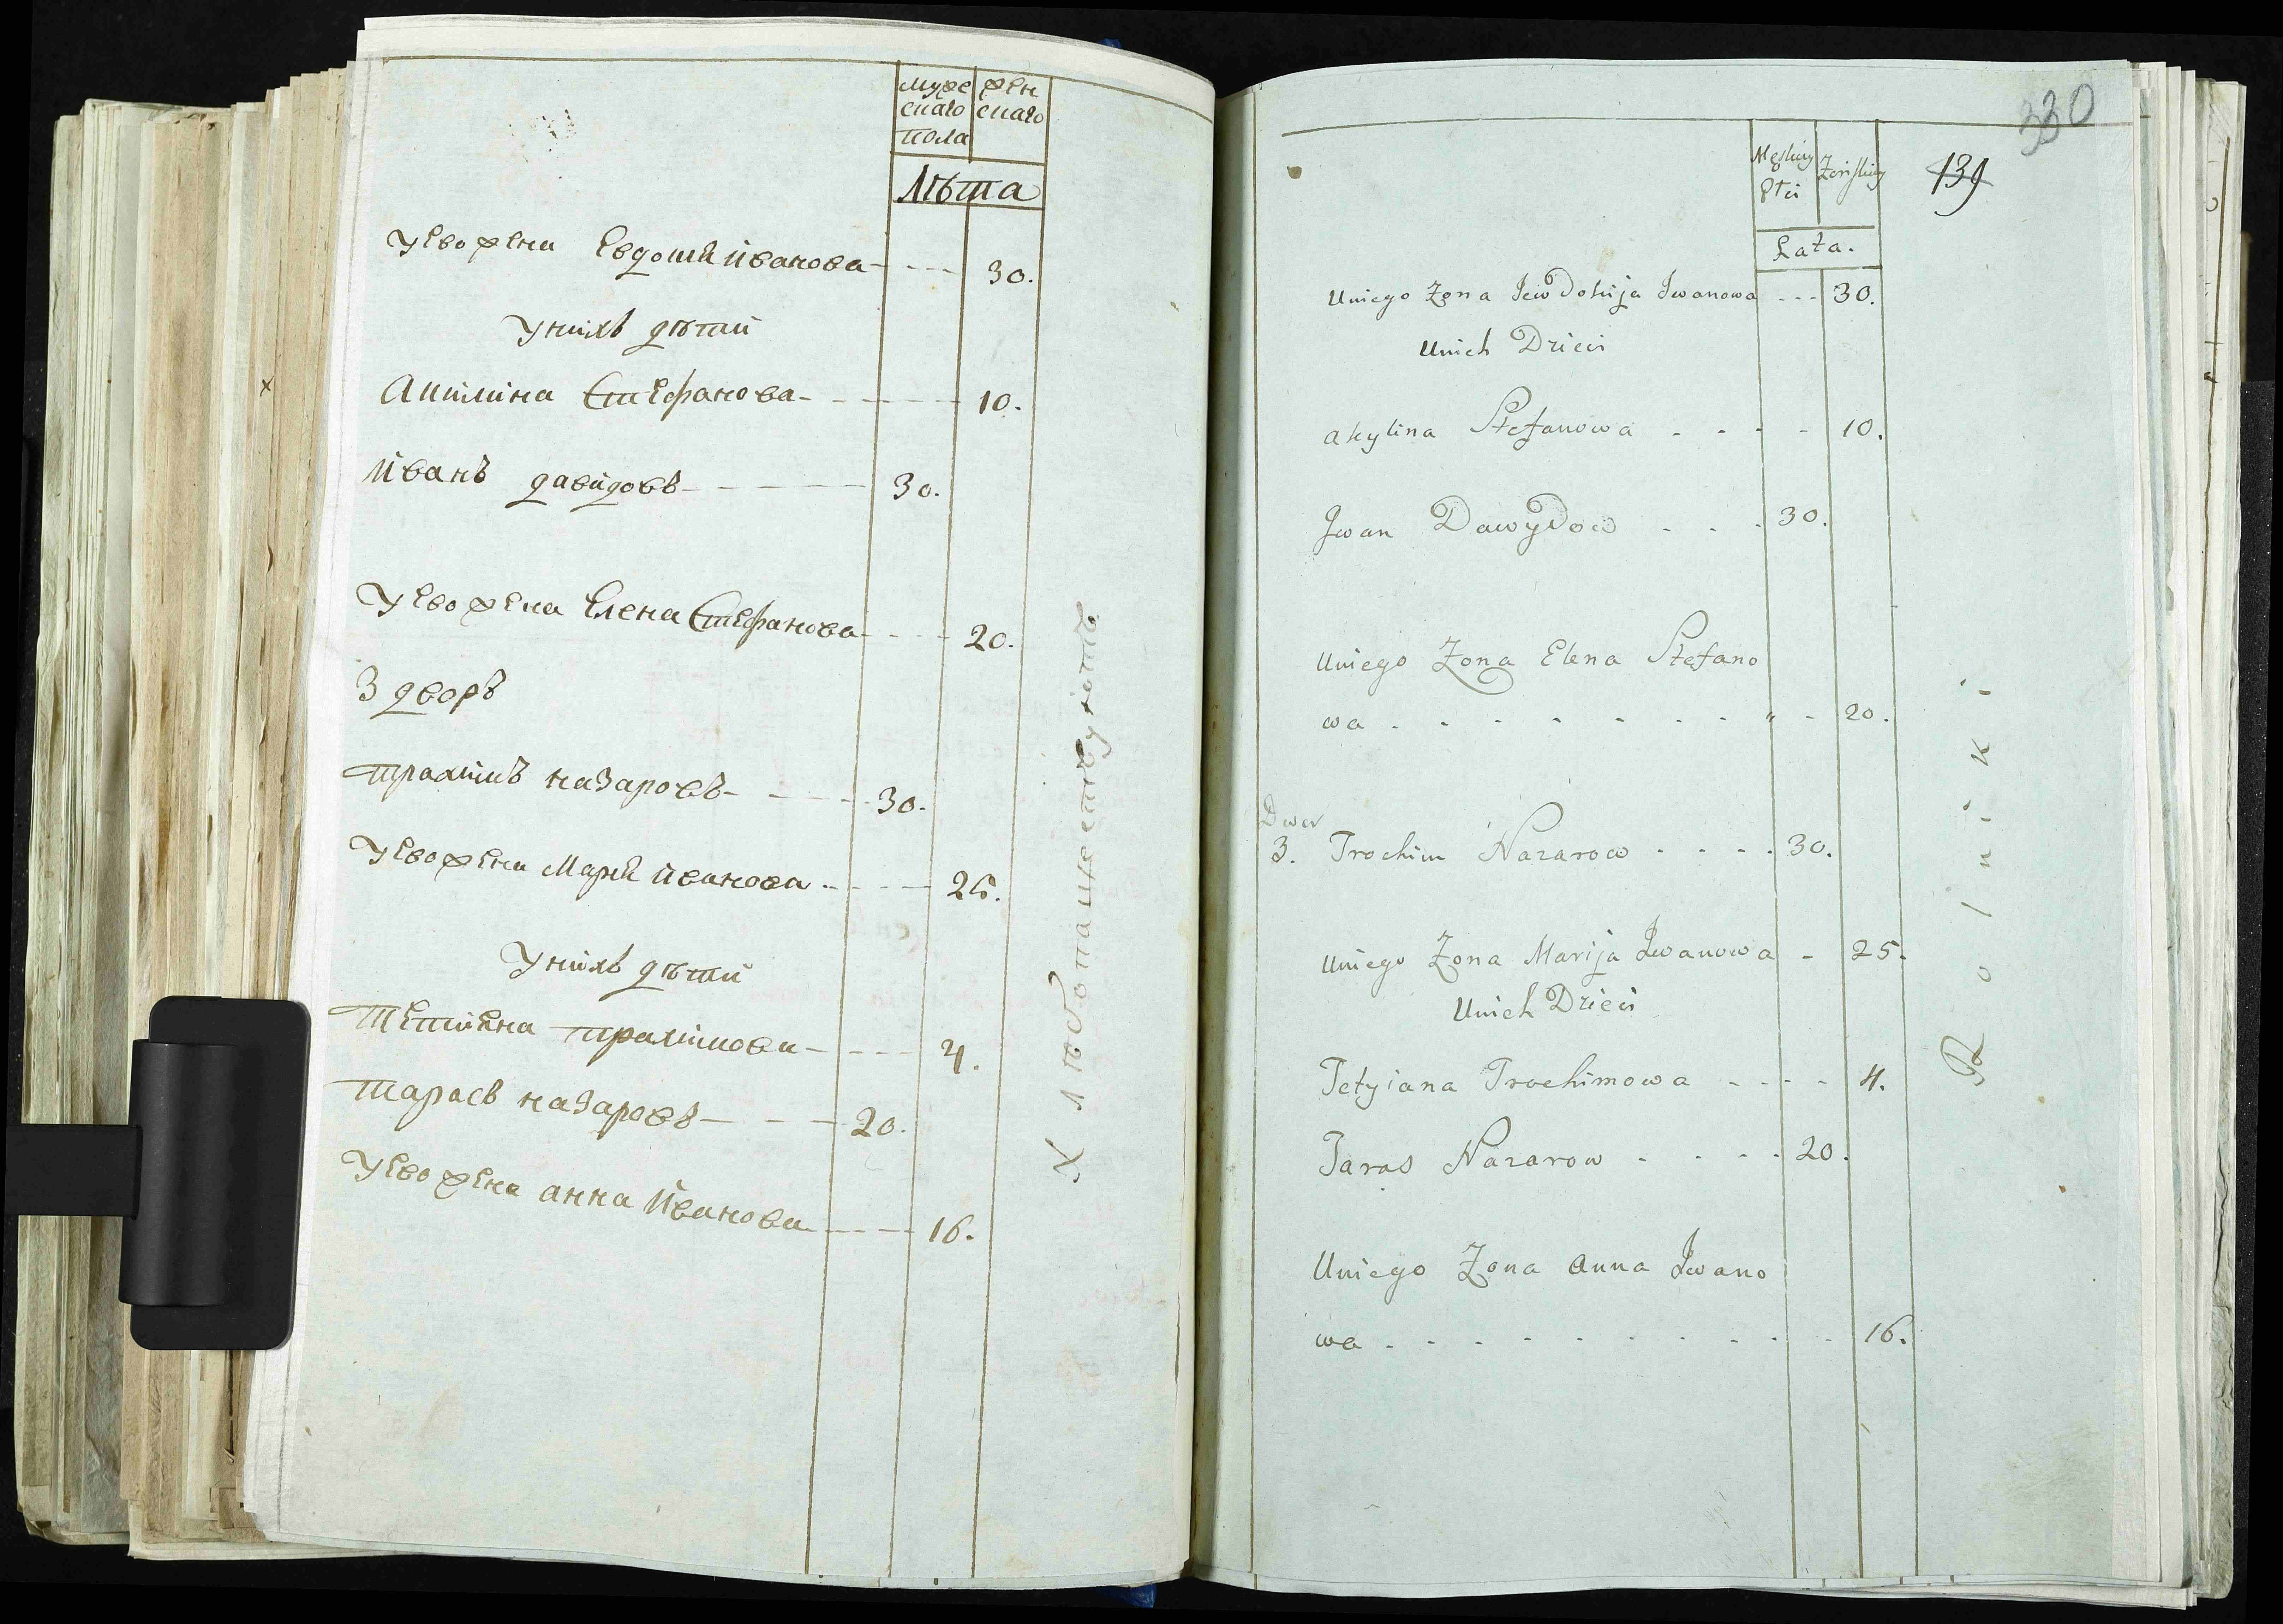 муже жен
скаго скаго
пола
Лѣта
У Его жена Евдокиꙗ Иванова - - - 30.
У нихъ дѣти
Акилина Стефанова - - - 10.
Иванъ давидовъ - - - 30.
У Его жена Елена Стефанова - - - 20.
3 дворъ
трахимъ назаровъ - - - 30.
У Его жена Мариꙗ Иванова - - - 25.
У нихъ дѣти
Тетиꙗна трахимова - - - 4.
тарасъ назаровъ - - - 20.
У Его жена анна Иванова - - - 16.
Хлѣбопашествуютъ
330
139
Męskiey Żeńskiey
Płci
Lata.
Uniego Żona Jewdokija Iwanowa - - - 30.
Unich Dzieci
Akylina Stefanowa - - - - 10.
Iwan Dawydow - - - 30.
Uniego Żona Elena Stefano
wa - - - - - - - - - 20.
Dwor
3. Trochim Nazarow - - - - 30.
Uniego Żona Marija Iwanowa - 25.
Unich Dzieci
Tetyiana Trochimowa - - - - 4.
Taras Nazarow - - - - 20.
Uniego Żona Anna Iwano
wa - - - - - - - - - 16.
Rolniki